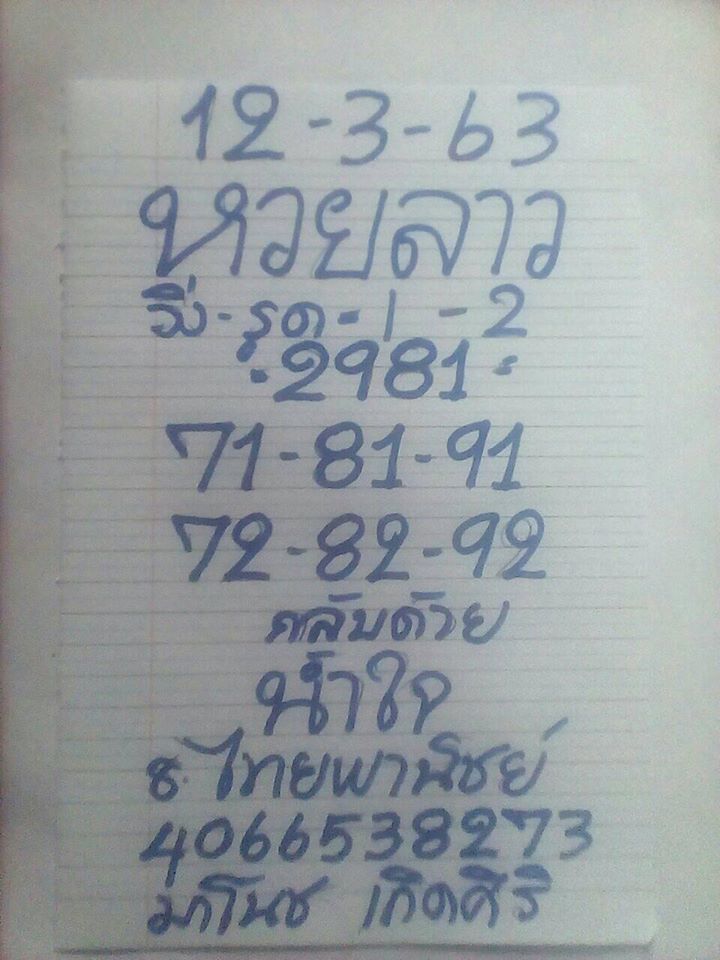 12-3-63
หวยลาว
วิ่ง-รูด-1-2
·2981·
71-81-91
72-82-92
กลับด้วย
น้ำใจ
ธ.ไทยพานิชย์
4066538273
มาโนช เกิดศิริ